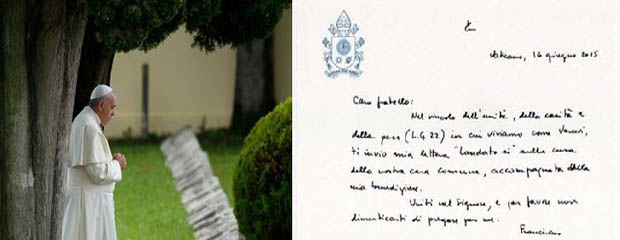 Vaticano, 16 giugno 2015
Caro fratello:
Nel vincolo dell'unità, della carità e
della pace (L.G. 22) in cui viviamo come Vescovi,
ti invio mia lettera "Laudato si'" sulla cura
della nostra casa comune, accompagnata dalla
mia benedizione.
Uniti nel Signore, e per favore non
dimenticarti di pregare per me.
Francesco